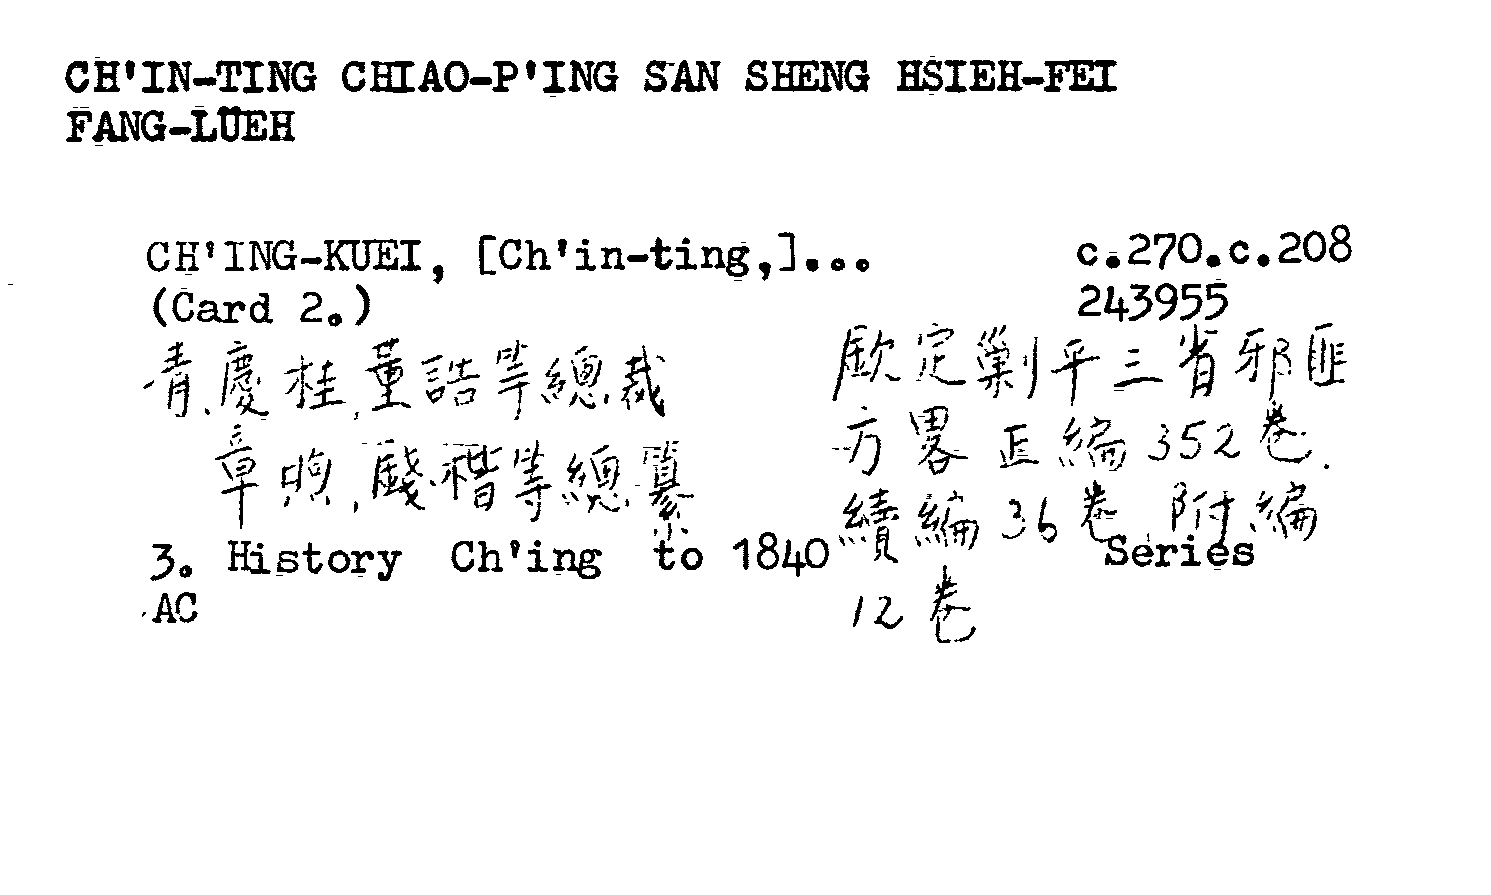 CH'IN-TING CHIAO-P'ING SAN SHENG HSIEH-FEI
FANG-LÜEH
CH'ING-KUEI, [Ch'in-ting,]... c.270.c.208
(Card 2.) 243955
清.慶桂.董誥等總裁
章煦.錢楷等總纂
欽定剿平三省邪匪
方畧 正編352卷.
續編36卷 附編
12卷
3. History Ch'ing to 1840 Series
AC